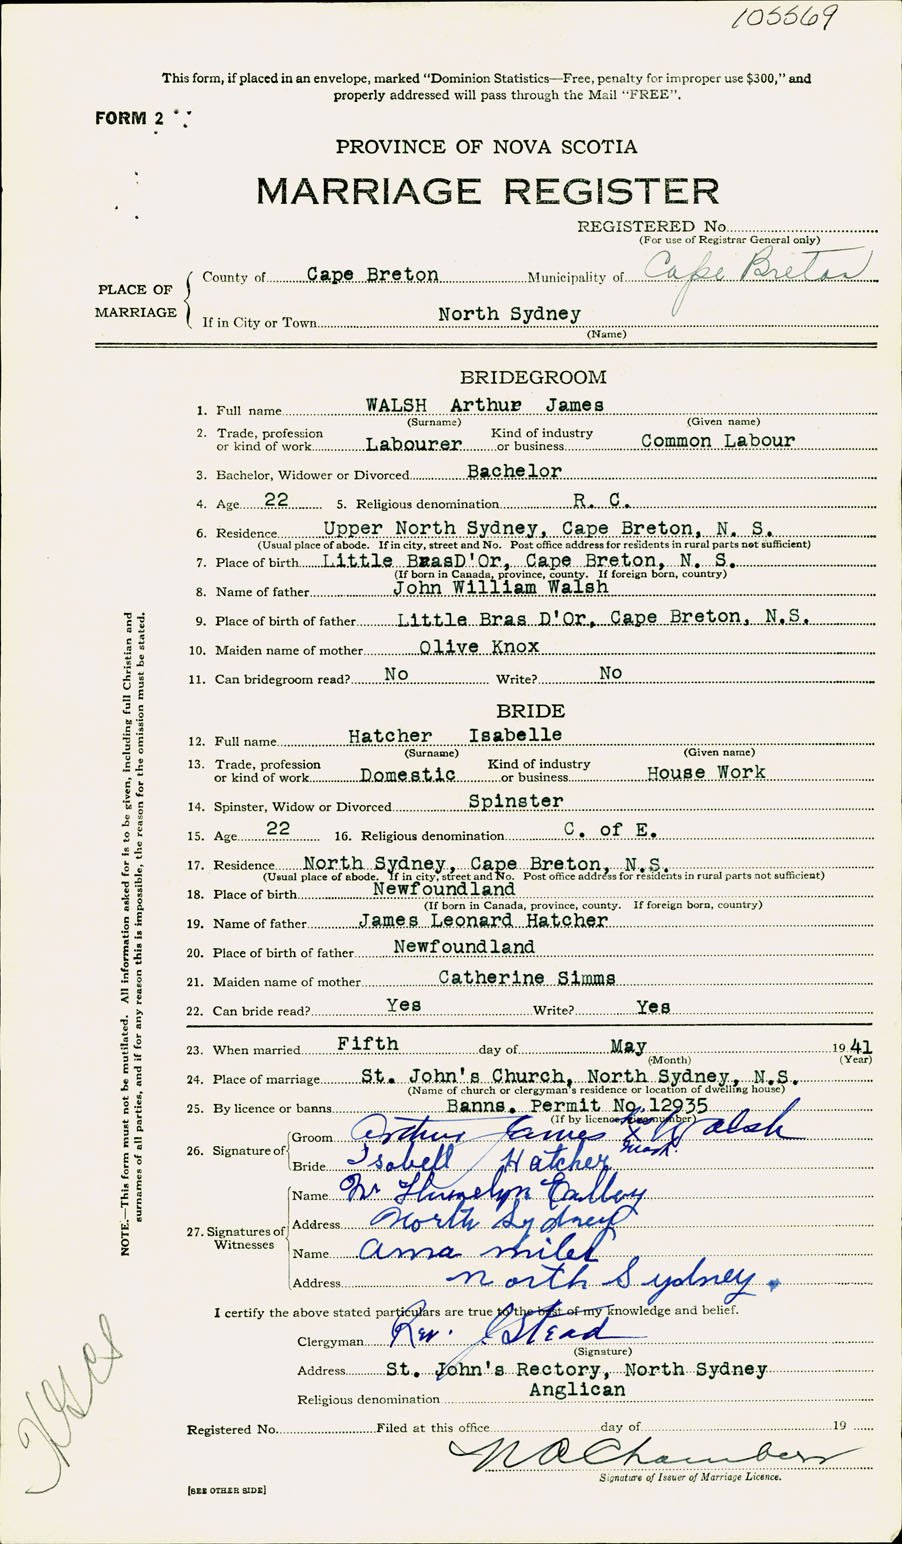 105569
This form, if placed in an envelope, marked "Dominion Statistics—Free, penalty for improper use $300," and
properly addressed will pass through the Mail "FREE".
FORM 2
PROVINCE OF NOVA SCOTIA
MARRIAGE REGISTER
REGISTERED No.
(For use of Registrar General only)
PLACE OF MARRIAGE
County of Cape Breton Municipality of Cape Breton
If in City or Town North Sydney
(Name)
BRIDEGROOM
1. Full name WALSH Arthur James
(Surname) (Given name)
2. Trade, profession or kind of work Labourer Kind of industry or business Common Labour
3. Bachelor, Widower or Divorced Bachelor
4. Age 22 5. Religious denomination R. C.
6. Residence Upper North Sydney, Cape Breton, N. S.
(Usual place of abode. If in city, street and No. Post office address for residents in rural parts not sufficient)
7. Place of birth Little BrasD'Or, Cape Breton, N. S.
(If born in Canada, province, county. If foreign born, country)
8. Name of father John William Walsh
9. Place of birth of father Little Bras D'Or, Cape Breton, N.S.
10. Maiden name of mother Olive Knox
11. Can bridegroom read? No Write? No
BRIDE
12. Full name Hatcher Isabelle
(Surname) (Given name)
13. Trade, profession or kind of work Domestic Kind of industry or business House Work
14. Spinster, Widow or Divorced Spinster
15. Age 22 16. Religious denomination C. of E.
17. Residence North Sydney, Cape Breton, N.S.
(Usual place of abode. If in city, street and No. Post office address for residents in rural parts not sufficient)
18. Place of birth Newfoundland
(If born in Canada, province, county. If foreign born, country)
19. Name of father James Leonard Hatcher
20. Place of birth of father Newfoundland
21. Maiden name of mother Catherine Simms
22. Can bride read? Yes Write? Yes
23. When married Fifth day of May 1941
(Month) (Year)
24. Place of marriage St. John's Church, North Sydney, N.S.
(Name of church or clergyman's residence or location of dwelling house)
25. By licence or banns Banns. Permit No.12935
(If by licence, give number)
26. Signature of
Groom Arthur James his X mark Walsh
Bride Isabell Hatcher
27. Signatures of Witnesses
Name
Address North Sydney
Name Anna Miles
Address North Sydney.
I certify the above stated particulars are true to the best of my knowledge and belief.
Clergyman Rev. J Stead
(Signature)
Address St. John's Rectory, North Sydney
Religious denomination Anglican
Registered No. Filed at this office day of 19
Signature of Issuer of Marriage Licence.
[SEE OTHER SIDE]
NOTE.—This form must not be mutilated. All information asked for is to be given, including full Christian and
surnames of all parties, and if for any reason this is impossible, the reason for the omission must be stated.